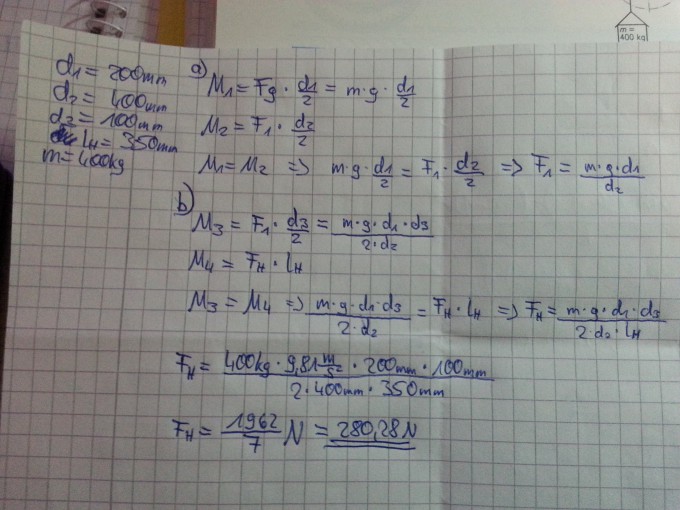 m =
400 kg
d1 = 200mm
d2 = 400mm
d3 = 100mm
lH = 350mm
m = 400kg
a) M1 = Fg · d1/2 = m·g · d1/2
M2 = F1 · d2/2
M1 = M2 => m·g·d1/2 = F1 · d2/2 => F1 = m·g·d1/d2
b) M3 = F1 · d3/2 = m·g·d1·d3/2·d2
M4 = FH · lH
M3 = M4 => m·g·d1·d3/2·d2 = FH · lH => FH = m·g·d1·d3/2·d2·lH
FH = 400kg · 9,81 m/s² · 200mm · 100mm/2·400mm·350mm
FH = 1962/7 N = 280,28N